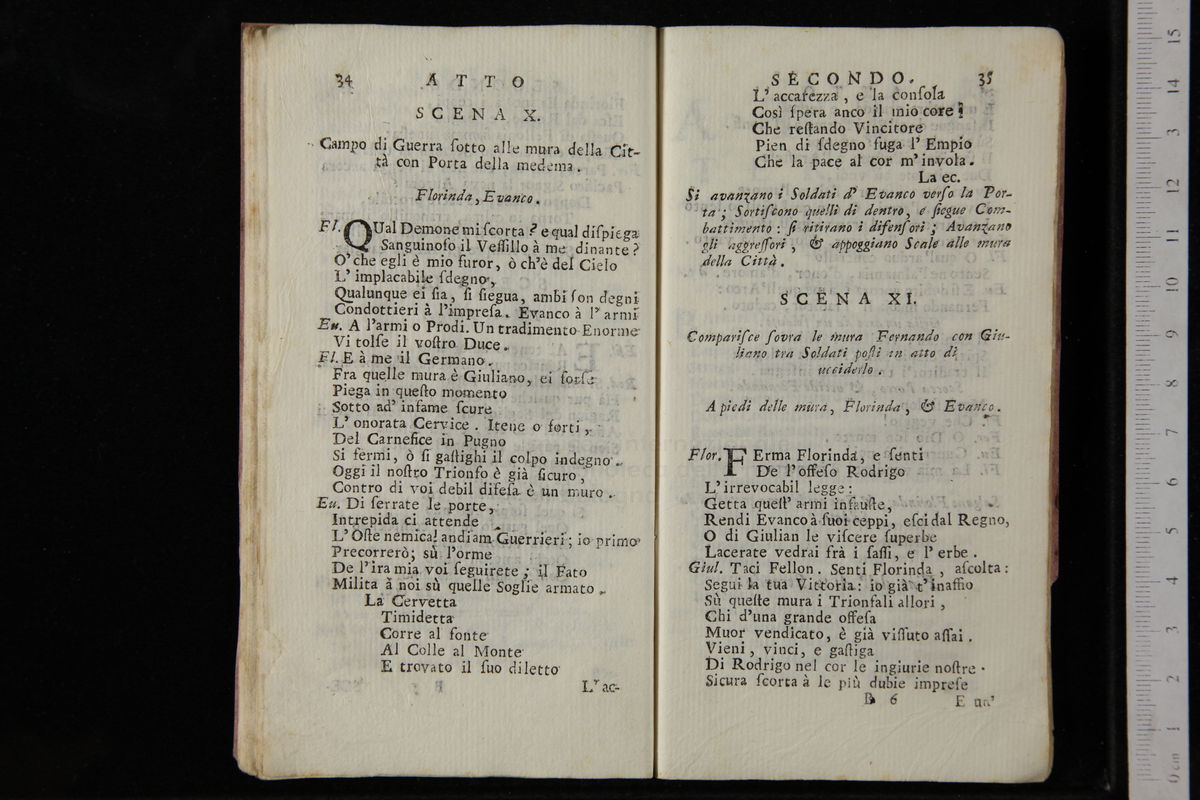 34 ATTO
SCENA X.
Campo di Guerra ſotto alle mura della Cit-
tà con Porta della medema.
Florinda, Evanco.
Fl. QUal Demone mi ſcorta? e qual diſpiega
Sanguinoſo il Veſſillo à me dinante?
O' che egli è mio furor, ò ch'è del Cielo
L' implacabile ſdegno,
Qualunque ei ſia, ſi ſiegua, ambi ſon degni
Condottieri à l'impreſa. Evanco à l' armi
Eu. A l'armi o Prodi. Un tradimento Enorme
Vi tolſe il voſtro Duce.
Fl. E à me il Germano.
Fra quelle mura è Giuliano, ei forſe
Piega in queſto momento
Sotto ad' infame ſcure
L' onorata Cervice. Itene o forti,
Del Carnefice in Pugno
Si fermi, ò ſi gaſtighi il colpo indegno.
Oggi il noſtro Trionfo è già ſicuro,
Contro di voi debil difeſa è un muro.
Eu. Di ferrate le porte,
Intrepida ci attende
L' Oſte nemica! andiam Guerrieri; io primo
Precorrerò; sù l'orme
De l'ira mia voi ſeguirete; il Fato
Milita à noi sù quelle Soglie armato.
La Cervetta
Timidetta
Corre al fonte
Al Colle al Monte
E trovato il ſuo diletto
L' ac-
SECONDO. 35
L' accarezza, e la conſola
Così ſpera anco il mio core;
Che reſtando Vincitore
Pien di ſdegno fuga l' Empio
Che la pace al cor m'invola.
La ec.
Si avanzano i Soldati d' Evanco verſo la Por-
ta; Sortiſcono quelli di dentro, e ſiegue Com-
battimento: ſi ritirano i difenſori; Avanzano
gli aggreſſori, & appoggiano Scale alle mura
della Città.
SCENA XI.
Compariſce ſovra le mura Fernando con Giu-
liano tra Soldati poſti in atto di
ucciderlo.
A piedi delle mura, Florinda, & Evanco.
Flor. FErma Florinda, e ſenti
De l'offeſo Rodrigo
L'irrevocabil legge:
Getta queſt' armi infauſte,
Rendi Evanco à ſuoi ceppi, eſci dal Regno,
O di Giulian le viſcere ſuperbe
Lacerate vedrai frà i ſaſſi, e l' erbe.
Giul. Taci Fellon. Senti Florinda, aſcolta:
Segui la tua Vittoria: io già t'inaffio
Sù queſte mura i Trionfali allori,
Chi d'una grande offeſa
Muor vendicato, è già viſſuto aſſai.
Vieni, vinci, e gaſtiga
Di Rodrigo nel cor le ingiurie noſtre.
Sicura ſcorta à le più dubie impreſe
B 6 E un'